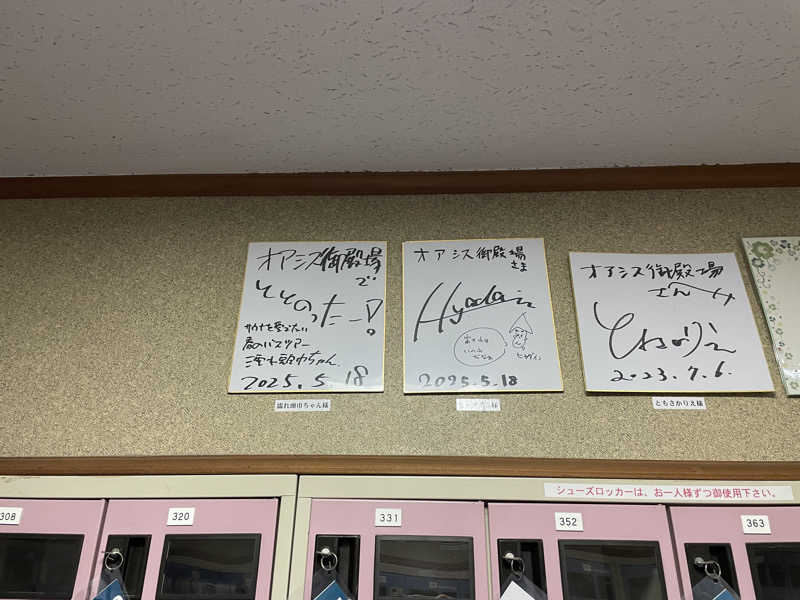 オアシス御殿場
で
ととのったー!
サウナを愛でたい
濡れ頭巾ちゃん
2025.5.18
濡れ頭巾ちゃん様
オアシス御殿場
さま
Hyadain
ヒャダイン
2025.5.18
オアシス御殿場
さんへ
ともさかりえ
2023.7.6.
ともさかりえ様
シューズロッカーは、お一人様ずつ御使用下さい。
308
320
331
352
363